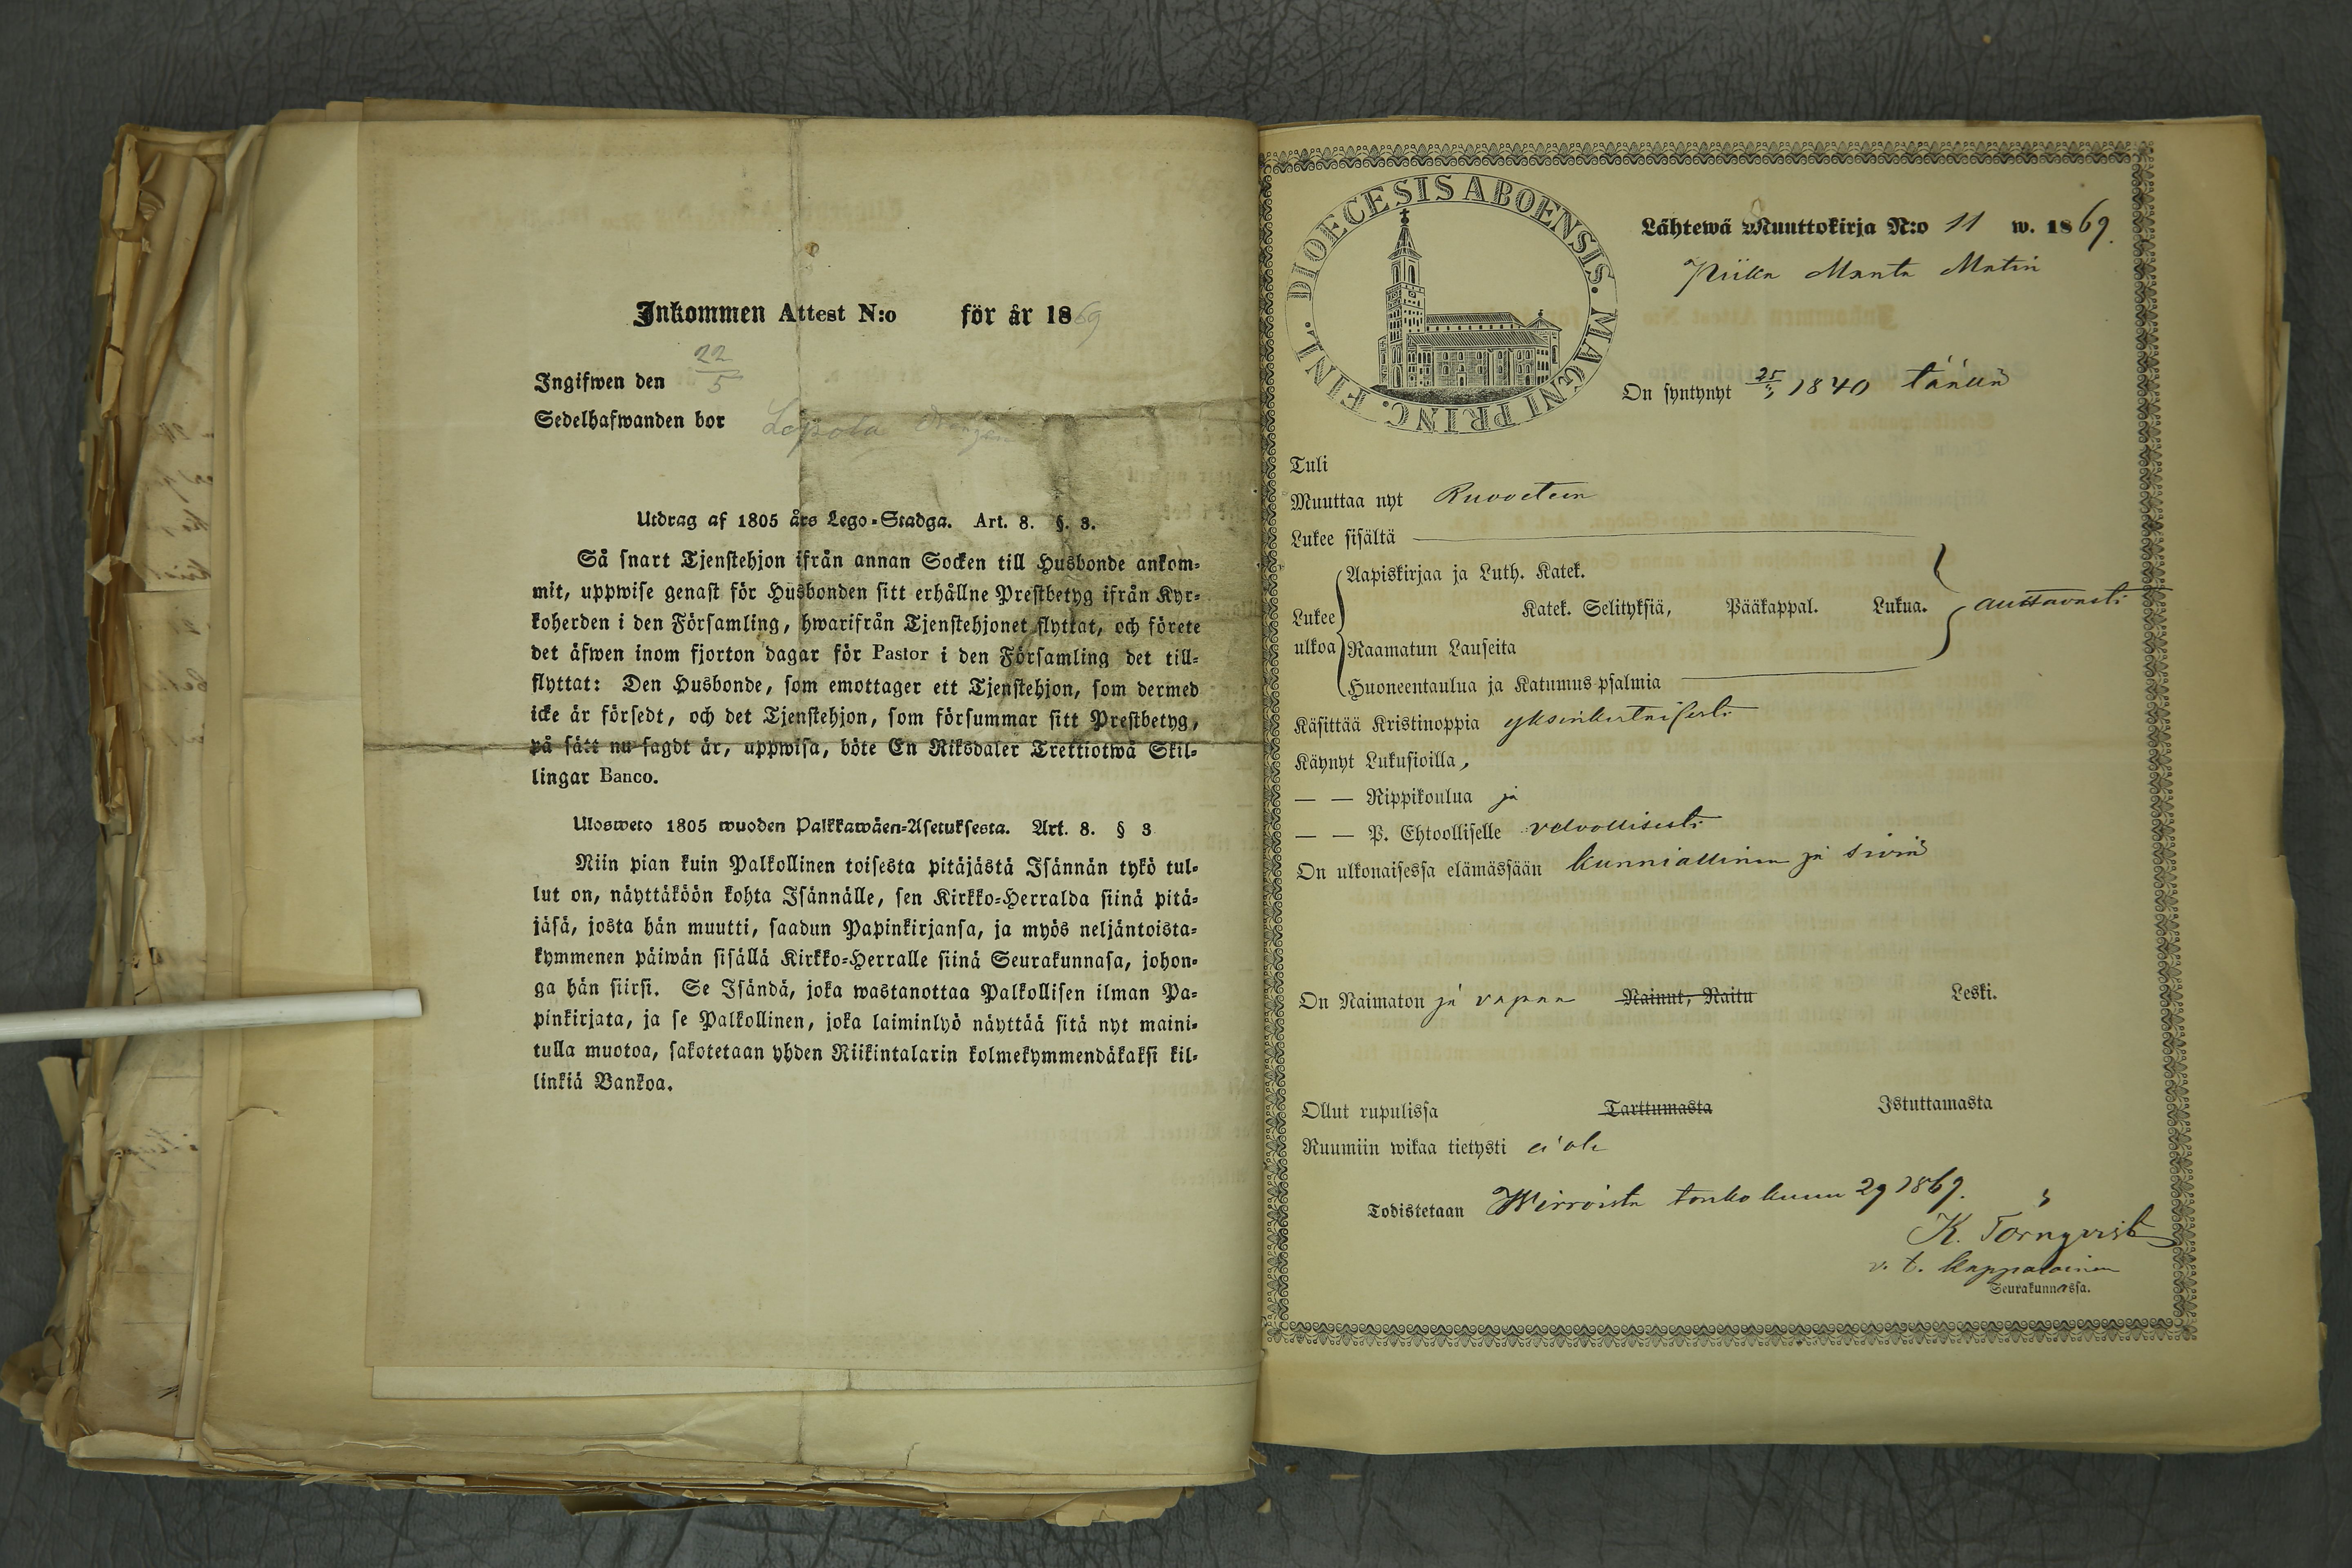 Inkommen Attest N:o för år 1869
Ingifwen den 22/5
Sedelhafwanden bor
Utdrag af 1805 års Lego-Stadga. Art. 8. §. 3.
Så snart Tjenstehjon ifrån annan Socken till Husbonde ankom-
mit, uppwise genast för Husbonden sitt erhållne Prestbetyg ifrån Kyr-
koherden i den Församling, hwarifrån Tjenstehjonet flyttat, och förete
det äfwen inom fjorton dagar för Pastor i den Församling det till-
flyttat: Den Husbonde, som emottager ett Tjenstehjon, som dermed
icke är försedt, och det Tjenstehjon, som försummar sitt Prestbetyg,
på sätt nu sagdt är, uppwisa, böte En Riksdaler Trettiotwå Skil-
lingar Banco.
Ulosweto 1805 wuoden Palkkawäen-Asetuksesta. Art. 8. § 3
Niin pian kuin Palkollinen toisesta pitäjästä Isännän tykö tul-
lut on, näyttäköön kohta Isännälle, sen Kirkko-Herralda siinä pitä-
jäsä, josta hän muutti, saadun Papinkirjansa, ja myös neljäntoista-
kymmenen päiwän sisällä Kirkko-Herralle siinä Seurakunnasa, johon-
ga hän siirsi. Se Isändä, joka wastanottaa Palkollisen ilman Pa-
pinkirjata, ja se Palkollinen, joka laiminlyö näyttää sitä nyt maini-
tulla muotoa, sakotetaan yhden Riikintalarin kolmekymmendäkaksi kil-
linkiä Bankoa.
DIOECESIS ABOENSIS. MAGNI PRINC. FINL.
Lähtewä Muuttokirja N:o 11 w. 1869.
Piika Manta Matin
On syntynyt 25/ 1840 täällä
Tuli
Muuttaa nyt Ruoveteen
Lukee sisältä
Lukee ulkoa
Aapiskirjaa ja Luth. Katek.
Katek. Selityksiä, Pääkappal. Lukua. auttavasti
Raamatun Lauseita
Huoneentaulua ja Katumus-psalmia
Käsittää Kristinoppia yksinkertaisesti
Käynyt Lukusioilla,
— — Rippikoulua ja
— — P. Ehtoolliselle velvollisesti
On ulkonaisessa elämässään kunniallinen ja siviä
On Naimaton ja vapaa Nainut, Naitu Leski.
Ollut rupulissa Tarttumasta Istuttamasta
Ruumiin wikaa tietysti ei ole
Todistetaan Wirroista toukokuun 29 1869.
K. Törnqvist
v. t. kappalainen
Seurakunnassa.